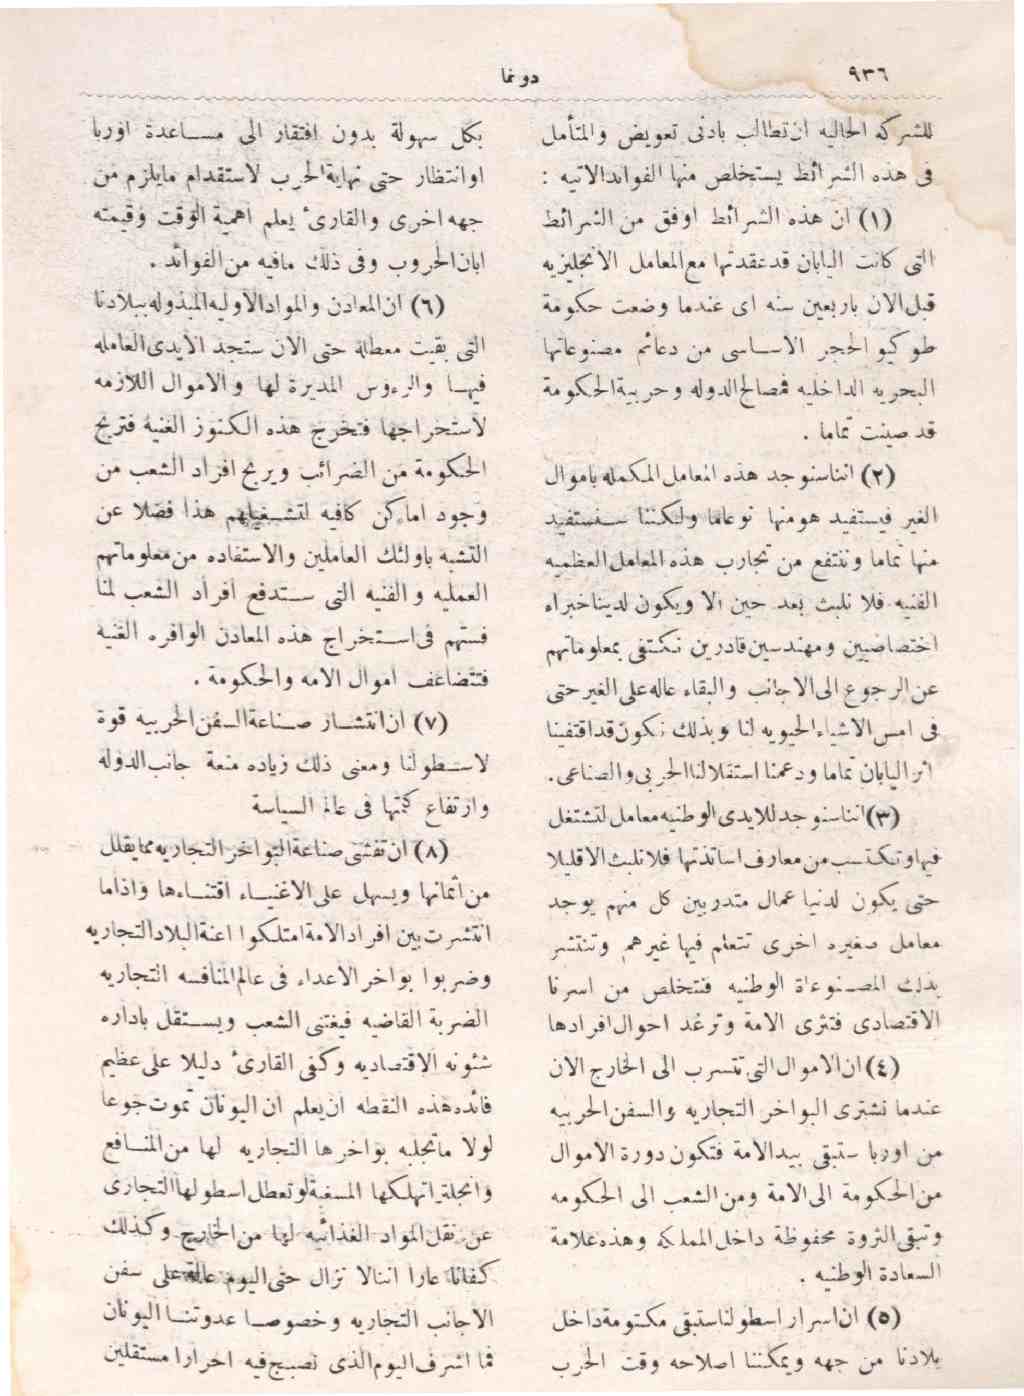 ٩٣٦
دونما
للشركه الحاليه ان تطالب بادنى تعويض والمتأمل
فى هذه الشرائط يستخلص منها الفوائد الاتيه :
(١) ان هذه الشرائط اوفق من الشرائط
التى كانت اليابان قد عقدتها مع المعامل الانجليزيه
قبل الان باربعين سنه اى عندما وضعت حكومة
طوكيو الحجر الاساسى من دعائم مصنوعاتها
البحريه الداخليه فمصالح الدوله وحربية الحكومة
قد صينت تماما .
(٢) اننا سنوجد هذه المعامل المكمله باموال
الغير فيستفيد هو منها نوعاما ولكننا سنستفيد
منها تماما وننتفع من تجارب هذه المعامل العظميه
الفنيه فلا نلبث بعد حين الا ويكون لدينا خبراء
اختصاصيين ومهندسين قادرين نكتفى بمعلوماتهم
عن الرجوع الى الاجانب والبقاء عاله على الغير حتى
فى امس الاشياء الحيويه لنا وبذلك نكون قد اقتفينا
اثر اليابان تماما ودعمنا استقلالنا الحربى والصناعى .
(٣) اننا سنوجد للايدى الوطنيه معامل لتشتغل
فيها وتكتسب من معارف اساتذتها فلا نلبث الا قليلا
حتى يكون لدنيا عمال متدربين كل منهم يوجد
معامل صغيره اخرى تتعلم فيها غيرهم وتنتشر
بذلك المصنوعاة الوطنيه فنتخلص من اسرنا
الاقتصادى فتثرى الامة وترغد احوال افرادها
(٤) ان الاموال التى تتسرب الى الخارج الان
عندما نشترى البواخر التجاريه والسفن الحربيه
من اوربا ستبقى بيد الامة فتكون دورة الاموال
من الحكومة الى الامة ومن الشعب الى الحكومه
وتبقى الثروة محفوظة داخل المملكه وهذه علامة
السعادة الوطنيه .
(٥) ان اسرار اسطولنا ستبقى مكتومة داخل
بلادنا من جهه ويمكننا اصلاحه وقت الحرب
بكل سهولة بدون افتقار الى مساعدة اوربا
او انتظار حتى نهاية الحرب لاستقدام مايلزم من
جهه اخرى والقارئ يعلم اهمية الوقت وقيمته
ابان الحروب وفى ذلك مافيه من الفوائد .
(٦) ان المعادن والمواد الاوليه المبذوله ببلادنا
التى بقيت معطلة حتى الان ستجد الايدى العامله
فيها والرءوس المديرة لها والاموال اللازمه
لاستخراجها فتخرج هذه الكنوز الغنية فتربح
الحكومة من الضرائب ويربح افراد الشعب من
وجود اماكن كافيه لتشغيلهم هذا فضلا عن
التشبه باولئك العاملين والاستفاده من معلوماتهم
العمليه والفنيه التى ستدفع افراد الشعب لمنا
فستهم فى استخراج هذه المعادن الوافره الغنية
فتتضاعف اموال الامه والحكومة .
(٧) ان انتشار صناعة السفن الحربيه قوة
لاسطولنا ومعنى ذلك زياده منعة جانب الدولة
وارتفاع كمتها فى عالم السياسة
(٨) ان تفشى صناعة البواخر التجاريه مما يقلل
من أثمانها ويسهل على الاغنياء اقتناءها واذاما
انتشرت بين افراد الامة امتلكوا اعنة البلاد التجاريه
وضربوا بواخر الاعداء فى عالم المنافسه التجاريه
الضربة القاضيه فيغتنى الشعب ويستقل باداره
شئونه الاقتصاديه وكفى القارئ دليلا على عظيم
فائده هذه النقطه ان يعلم ان اليونان تموت جوعا
لولا ماتجلبه بواخرها التجاريه لها من المنافع
وانجلترا تهلكها المسغبة لو تعطل اسطولها التجارى
عن نقل المواد الغذائيه لها من الخارج وكذلك
كفانا عارا اننا لا نزال حتى اليوم عالة على سفن
الاجانب التجاريه وخصوصا عدوتنا اليونان
فما اشرف اليوم الذى نصبح فيه احرارا مستقلين